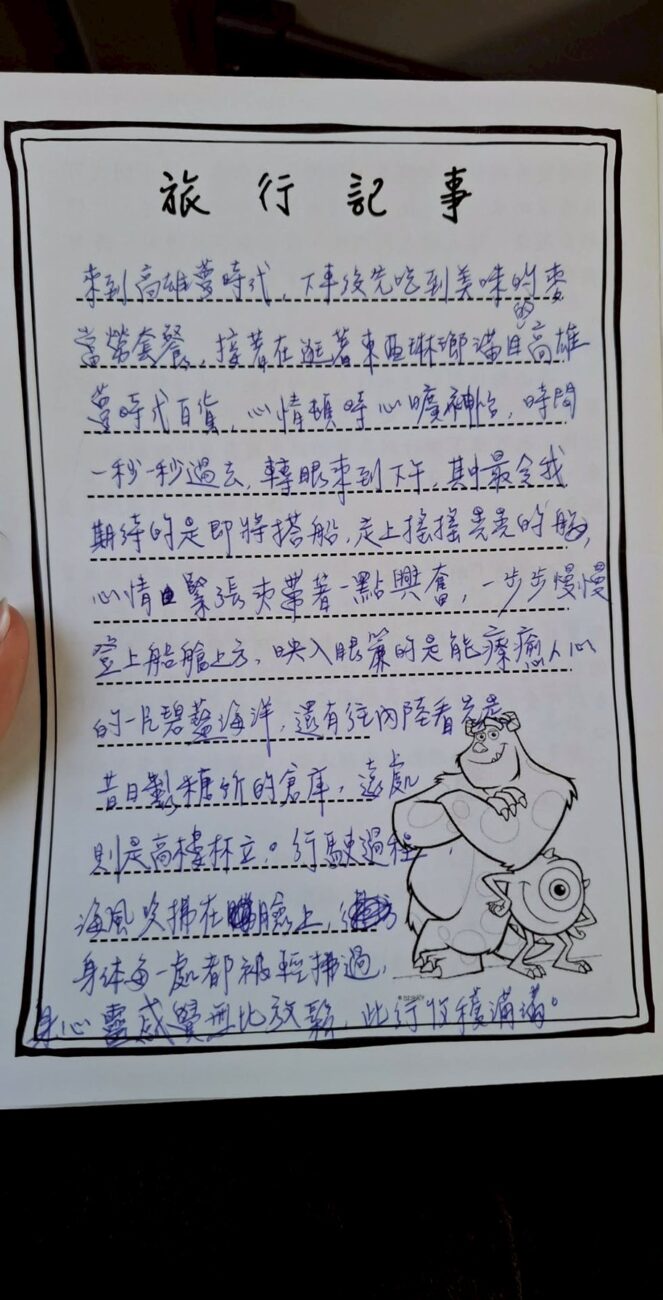 旅行記事
來到高雄夢時代，下車後先吃到美味的麥
當勞套餐，接著在逛著東西琳瑯滿目的高雄
夢時代百貨，心情頓時心曠神怡，時間
一秒一秒過去，轉眼來到下午，其中最令我
期待的是即將搭船，走上搖搖晃晃的船，
心情緊張夾帶著一點興奮，一步步慢慢
登上船艙上方，映入眼簾的是能療癒人心
的一片碧藍海洋，還有往內陸看去是
昔日製糖所的倉庫，遠處
則是高樓林立。行駛過程，
海風吹拂在臉上，
身体每一處都被輕拂過，
身心靈感覺無比放鬆，此行收穫滿滿。